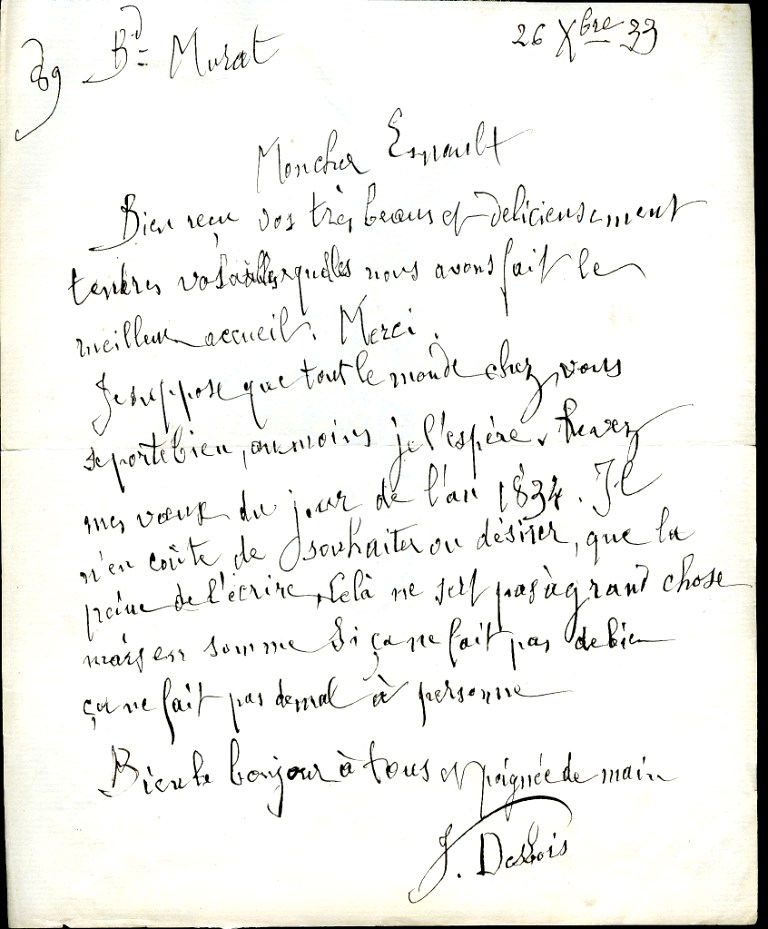 89 Bd Murat
26 Xbre 33
Mon cher Esnault
Bien reçu vos très beaux et délicieusement
tendres volailles auxquelles nous avons fait le
meilleur accueil. Merci.
Je suppose que tout le monde chez vous
se porte bien, au moins je l'espère,
mes vœux du jour de l'an 1834. Il
n'en coûte de souhaiter ou désirer, que la
peine de l'écrire, Celà ne sert pas à grand chose
mais en somme Si ça ne fait pas de bien
ça ne fait pas de mal à personne
Bien le bonjour à tous et poignée de main
J. Desbois